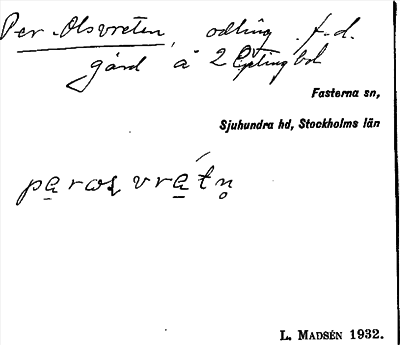 Per-Olsvreten, odling, f.d.
gård å 2
Fasterna sn,
Sjuhundra hd, Stockholms län
L. MADSÉN 1932.